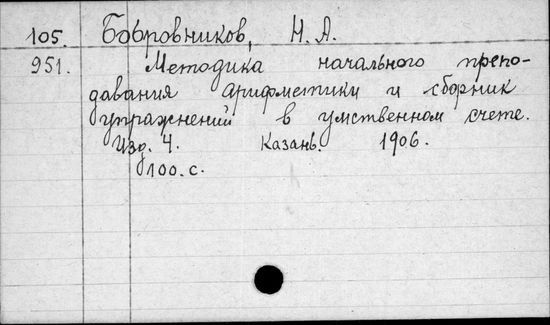 105. Бобровников, Н. А.
951. Методика начального препо-
давания арифметики и сборник
упражнений в умственном счете.
Изд. 4. Казань. 1906.
100. с.